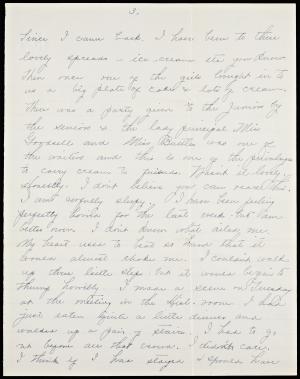 3.
Since I came back. I have been to three
lovely spreads - ice cream etc you know
Then once one of the girls brought in to
us a big plate of cake & lots of cream.
There was a party given to the Juniors by
the seniors & the lady principal Miss
Goodsell and Miss Bartlett was one of
the waiters and this is one of the privileges
to carry cream to friends. Wasn't it lovely,
honestly. I don't believe you can read this.
I am awfully sleepy. I have been feeling
perfectly horrid for the last week but am
better now. I don't know what ails me.
My heart uses to beat so hard that it
would almost choke me. I couldn't walk
up three little steps but it would begin to
thump horribly. I made a scene on Tuesday
at the meeting in the first-room. I had
just eaten quite a little dinner and
walked up a pair of stairs. I had to go
no before all that crowd. I didn't care.
I think if I had stayed I should have